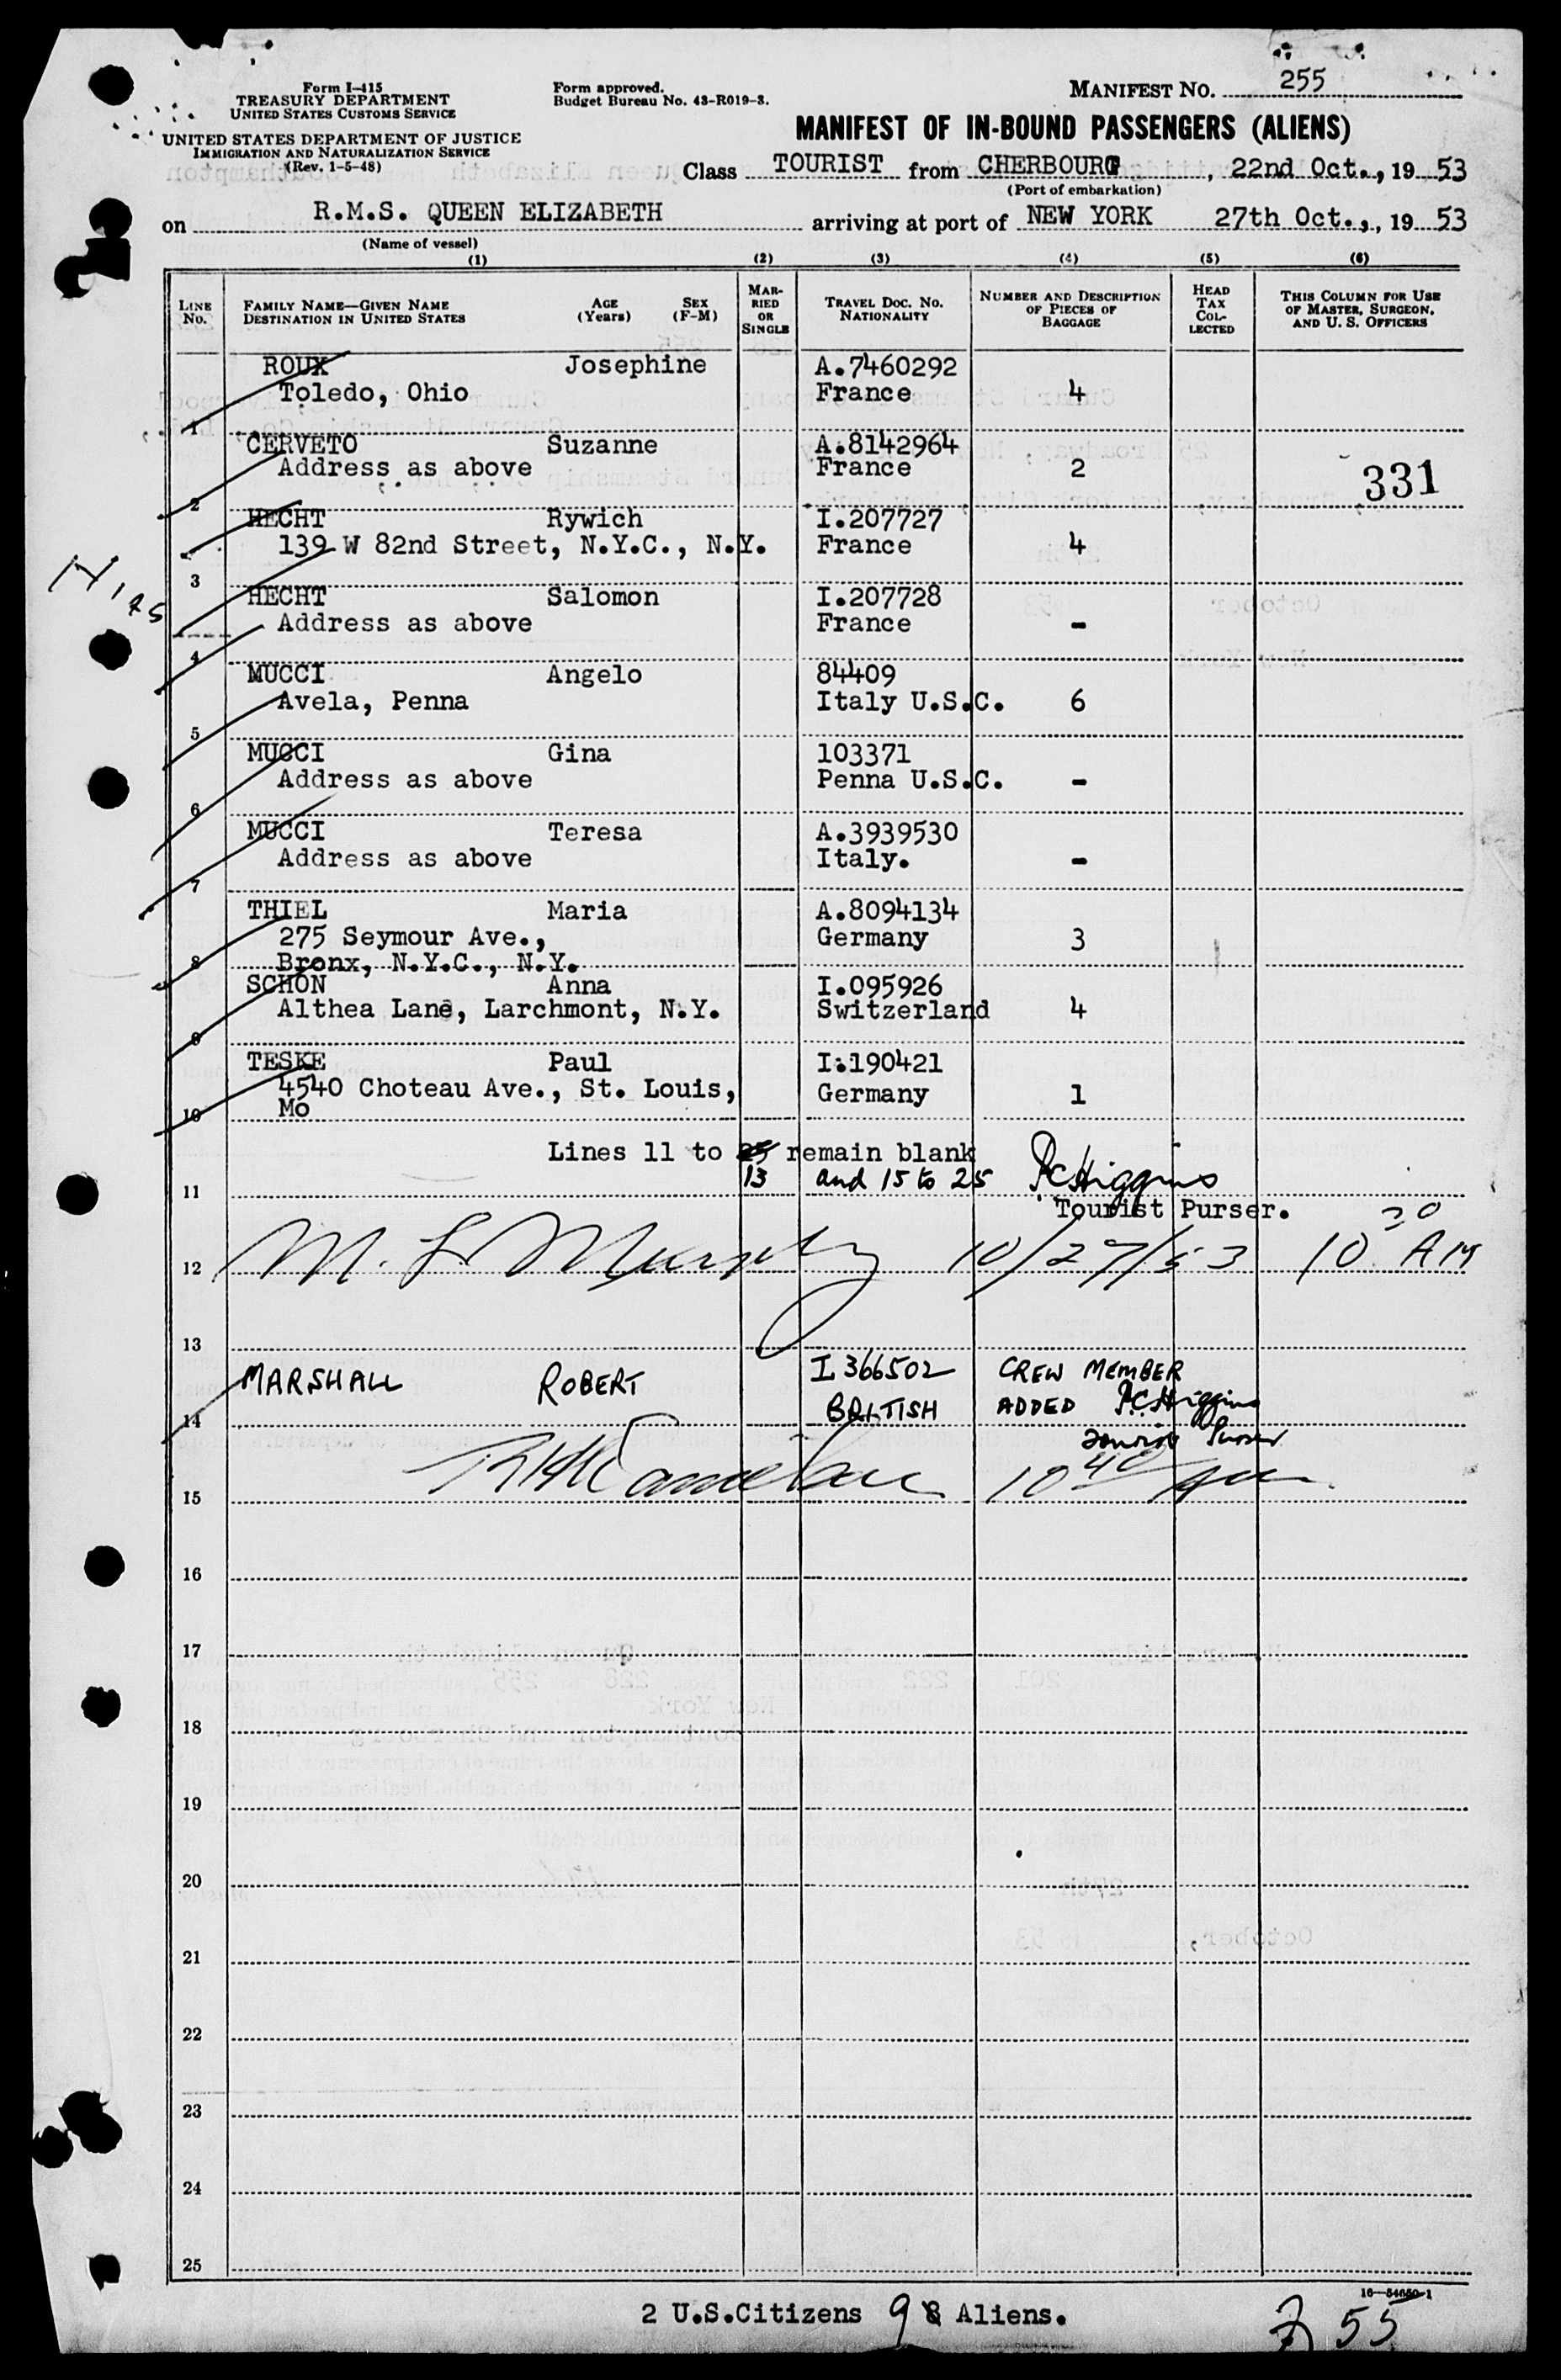 Form I-415
TREASURY DEPARTMENT
UNITED STATES CUSTOMS SERVICE
UNITED STATES DEPARTMENT OF JUSTICE
IMMIGRATION AND NATURALIZATION SERVICE
(Rev. 1-5-48)
Form approved.
Budget Bureau No. 43-R019-3.
MANIFEST NO. 255
MANIFEST OF IN-BOUND PASSENGERS (ALIENS)
Class TOURIST from CHERBOURG, 22nd Oct., 19 53
(Port of embarkation)
on R.M.S. QUEEN ELIZABETH arriving at port of NEW YORK 27th Oct., 19 53
(Name of vessel)
(1) (2) (3) (4) (5) (6)
LINE No. FAMILY NAME—GIVEN NAME DESTINATION IN UNITED STATES AGE (Years) SEX (F-M) MARRIED OR SINGLE TRAVEL DOC. NO. NATIONALITY NUMBER AND DESCRIPTION OF PIECES OF BAGGAGE HEAD TAX COLLECTED THIS COLUMN FOR USE OF MASTER, SURGEON, AND U. S. OFFICERS
ROUX Josephine A.7460292
Toledo, Ohio France 4
1
CERVETO Suzanne A.8142964
Address as above France 2 331
2
HECHT Rywich I.207727
139 W 82nd Street, N.Y.C., N.Y. France 4
3
HECHT Salomon I.207728
Address as above France -
4
MUCCI Angelo 84409
Avela, Penna Italy U.S.C. 6
5
MUCCI Gina 103371
Address as above Penna U.S.C. -
6
MUCCI Teresa A.3939530
Address as above Italy. -
7
THIEL Maria A.8094134
275 Seymour Ave., Germany 3
8 Bronx, N.Y.C., N.Y.
SCHON Anna I.095926
Althea Lane, Larchmont, N.Y. Switzerland 4
9
TESKE Paul I.190421
4540 Choteau Ave., St. Louis, Germany 1
10 Mo
Lines 11 to 25 remain blank
13 and 15 to 25 P.C. Higgins
11
Tourist Purser.
12 M. L. Murphy 10/27/53 10 30 AM
13
MARSHALL ROBERT I 366502 CREW MEMBER
BRITISH ADDED P.C. Higgins
14
Tourist Purser
10 40
15
16
17
18
19
20
21
22
23
24
25
2 U.S.Citizens 9 8 Aliens.
55